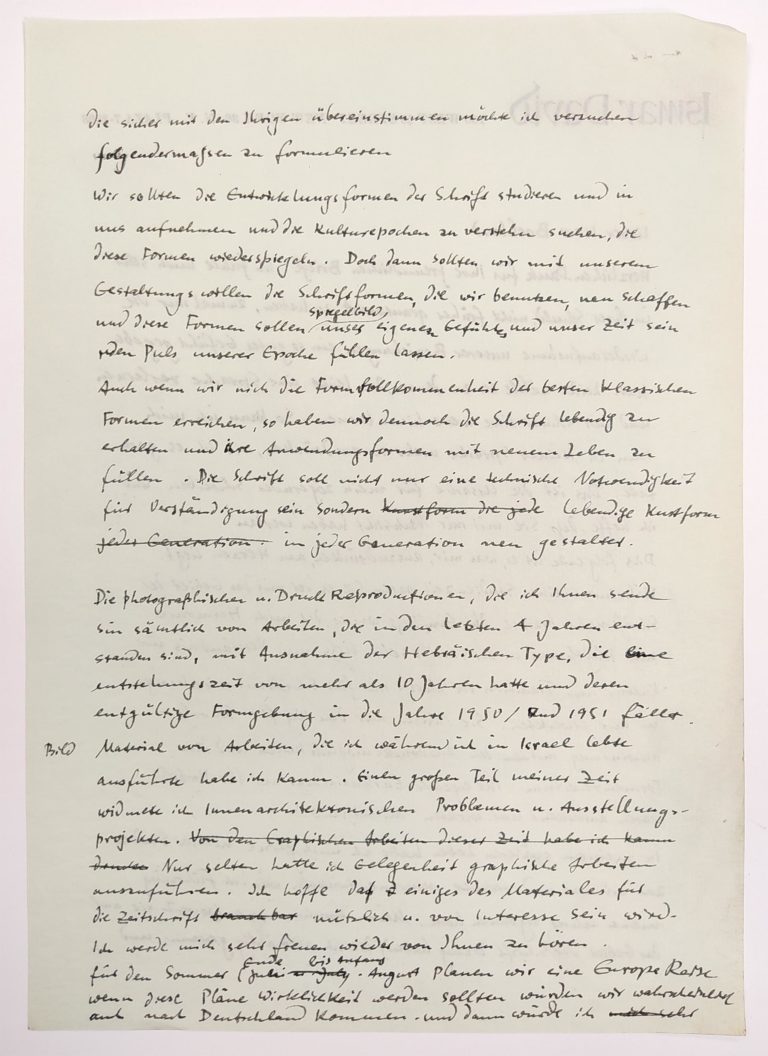 Ismar David
Die sicher mit den Ihrigen übereinstimmen möchte ich versuchen
folgendermassen zu formulieren
Wir sollten die Entwicklungsformen der Schrift studieren und in
uns aufnehmen und die Kulturepochen zu verstehn suchen, die
diese Formen wiederspiegeln. Doch dann sollten wir mit unserem
Gestaltungswillen die Schriftformen, die wir benutzen, neu schaffen
spiegelbild
und diese Formen sollen unser eigenen Gefühls und unser Zeit sein
den Puls unserer Epoche fühlen lassen.
Auch wenn wir nich die Formfollkommenheit der besten klassischen
Formen erreichen, so haben wir dennoch die Schrift lebendig zu
erhalten und ihre Anwendungsformen mit neuem Leben zu
füllen. Die Schrift soll nicht nur eine technische Notwendigkeit
für Verständigung sein sondern Kunstform die jede lebendige Kustform
jeder Generation. in jeder Generation neu gestaltet.
Die photographischen u. Druck Reproductionen, die ich Ihnen sende
sin sämtlich von Arbeiten, die in den letzten 4 Jahren ent-
standen sind, mit Ausnahme der Hebräischen Type, die eine
entstehungszeit von mehr als 10 Jahren hatte und deren
entgültige Formgebung in die Jahre 1950/ und 1951 fällt.
Bild Material von Arbeiten, die ich während ich in Israel lebte
ausführte habe ich kaum. Einen großen Teil meiner Zeit
widmete ich Innenarchitektonischen Problemen u. Ausstellungs-
projekten. Von den Graphischen Arbeiten dieser Zeit habe ich kaum
Nur selten hatte ich Gelegenheit graphische Arbeiten
auszuführen. Ich hoffe daß einiges des Materiales für
die Zeitschrift brauchbar nützlich u. von Interesse sein wird.
Ich werde mich sehr freuen wieder von Ihnen zu hören.
ende bis Anfang
für den Sommer (Juli August planen wir eine Europa Reise
wenn diese Pläne Wirklichkeit werden sollten würden wir wahrscheinlich
auch nach Deutschland kommen. und dann würde ich mich sehr